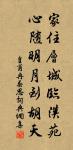 家住層城臨漢苑
心隨明月到胡天
皇甫冉春思詞典網書